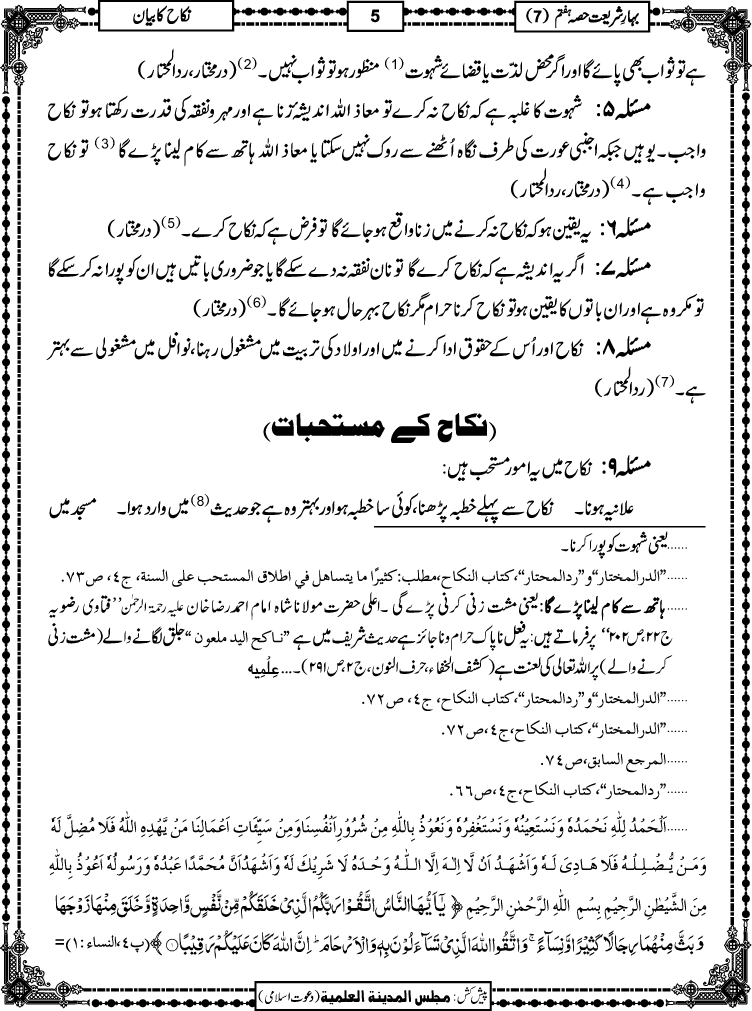 بہارِ شریعت حصہ ہفتم (7)
5
نکاح کا بیان
ہے تو ثواب بھی پائے گا اور اگر محض لذّت یا قضائے شہوت (1) منظور ہو تو ثواب نہیں۔ (2) (درمختار، ردالمحتار)
مسئلہ ۵: شہوت کا غلبہ ہے کہ نکاح نہ کرے تو معاذ اللہ اندیشۂ زنا ہے اور مہر و نفقہ کی قدرت رکھتا ہو تو نکاح
واجب۔ یوہیں جبکہ اجنبی عورت کی طرف نگاہ اُٹھنے سے روک نہیں سکتا یا معاذ اللہ ہاتھ سے کام لینا پڑے گا (3) تو نکاح
واجب ہے۔ (4) (درمختار، ردالمحتار)
مسئلہ ۶: یہ یقین ہو کہ نکاح نہ کرنے میں زنا واقع ہو جائے گا تو فرض ہے کہ نکاح کرے۔ (5) (درمختار)
مسئلہ ۷: اگر یہ اندیشہ ہے کہ نکاح کرے گا تو نان نفقہ نہ دے سکے گا یا جو ضروری باتیں ہیں ان کو پورا نہ کر سکے گا
تو مکروہ ہے اور ان باتوں کا یقین ہو تو نکاح کرنا حرام مگر نکاح بہرحال ہو جائے گا۔ (6) (درمختار)
مسئلہ ۸: نکاح اور اُس کے حقوق ادا کرنے میں اور اولاد کی تربیت میں مشغول رہنا، نوافل میں مشغولی سے بہتر
ہے۔ (7) (ردالمحتار)
(نکاح کے مستحبات)
مسئلہ ۹: نکاح میں یہ امور مستحب ہیں:
علانیہ ہونا۔ نکاح سے پہلے خطبہ پڑھنا، کوئی سا خطبہ ہو اور بہتر وہ ہے جو حدیث (8) میں وارد ہوا۔ مسجد میں
......یعنی شہوت کو پورا کرنا۔
......"الدرالمختار" و "ردالمحتار"، کتاب النکاح، مطلب: کثیرًا ما یتساهل في اطلاق المستحب علی السنة، ج٤، ص٧٣.
......ہاتھ سے کام لینا پڑے گا: یعنی مشت زنی کرنی پڑے گی۔ اعلی حضرت مولانا شاہ امام احمد رضا خان علیہ رحمۃ الرحمٰن ''فتاوی رضویہ
ج۲۲، ص۲۰۲'' پر فرماتے ہیں: یہ فعل ناپاک حرام و ناجائز ہے حدیث شریف میں ہے "ناکح الید ملعون" جلق لگانے والے (مشت زنی
کرنے والے) پر اللہ تعالی کی لعنت ہے (کشف الخفاء، حرف النون، ج۲، ص۲۹۱)۔... عِلْمِیه
......"الدرالمختار" و "ردالمحتار"، کتاب النکاح، ج٤، ص٧٢.
......"الدرالمختار"، کتاب النکاح، ج٤، ص٧٢.
......المرجع السابق، ص٧٤.
......"ردالمحتار"، کتاب النکاح، ج٤، ص٦٦.
......اَلْحَمْدُ لِلّٰهِ نَحْمَدُهٗ وَنَسْتَعِيْنُهٗ وَنَسْتَغْفِرُهٗ وَنَعُوْذُ بِاللّٰهِ مِنْ شُرُوْرِ اَنْفُسِنَا وَمِنْ سَيِّئٰاتِ اَعْمَالِنَا مَنْ يَّهْدِهِ اللّٰهُ فَلَا مُضِلَّ لَهٗ
وَمَنْ يُّضْلِلْهُ فَلَا هَادِىَ لَهٗ وَاَشْهَدُ اَنْ لَّا اِلٰهَ اِلَّا اللّٰهُ وَحْدَهٗ لَا شَرِيْكَ لَهٗ وَاَشْهَدُ اَنَّ مُحَمَّدًا عَبْدُهٗ وَرَسُوْلُهٗ اَعُوْذُ بِاللّٰهِ
مِنَ الشَّيْطٰنِ الرَّجِيْمِ بِسْمِ اللّٰهِ الرَّحْمٰنِ الرَّحِيْمِ ﴿ يٰۤاَيُّهَا النَّاسُ اتَّقُوْا رَبَّكُمُ الَّذِيْ خَلَقَكُمْ مِّنْ نَّفْسٍ وَّاحِدَةٍ وَّخَلَقَ مِنْهَا زَوْجَهَا
وَبَثَّ مِنْهُمَا رِجَالًا كَثِيْرًا وَّنِسَآءً ۚ وَاتَّقُوا اللّٰهَ الَّذِيْ تَسَآءَلُوْنَ بِهٖ وَالْاَرْحَامَ ؕ اِنَّ اللّٰهَ كَانَ عَلَيْكُمْ رَقِيْبًا ۝ ﴾ (پ٤، النساء: ١) =
پیش کش: مجلس المدینة العلمیة (دعوت اسلامی)